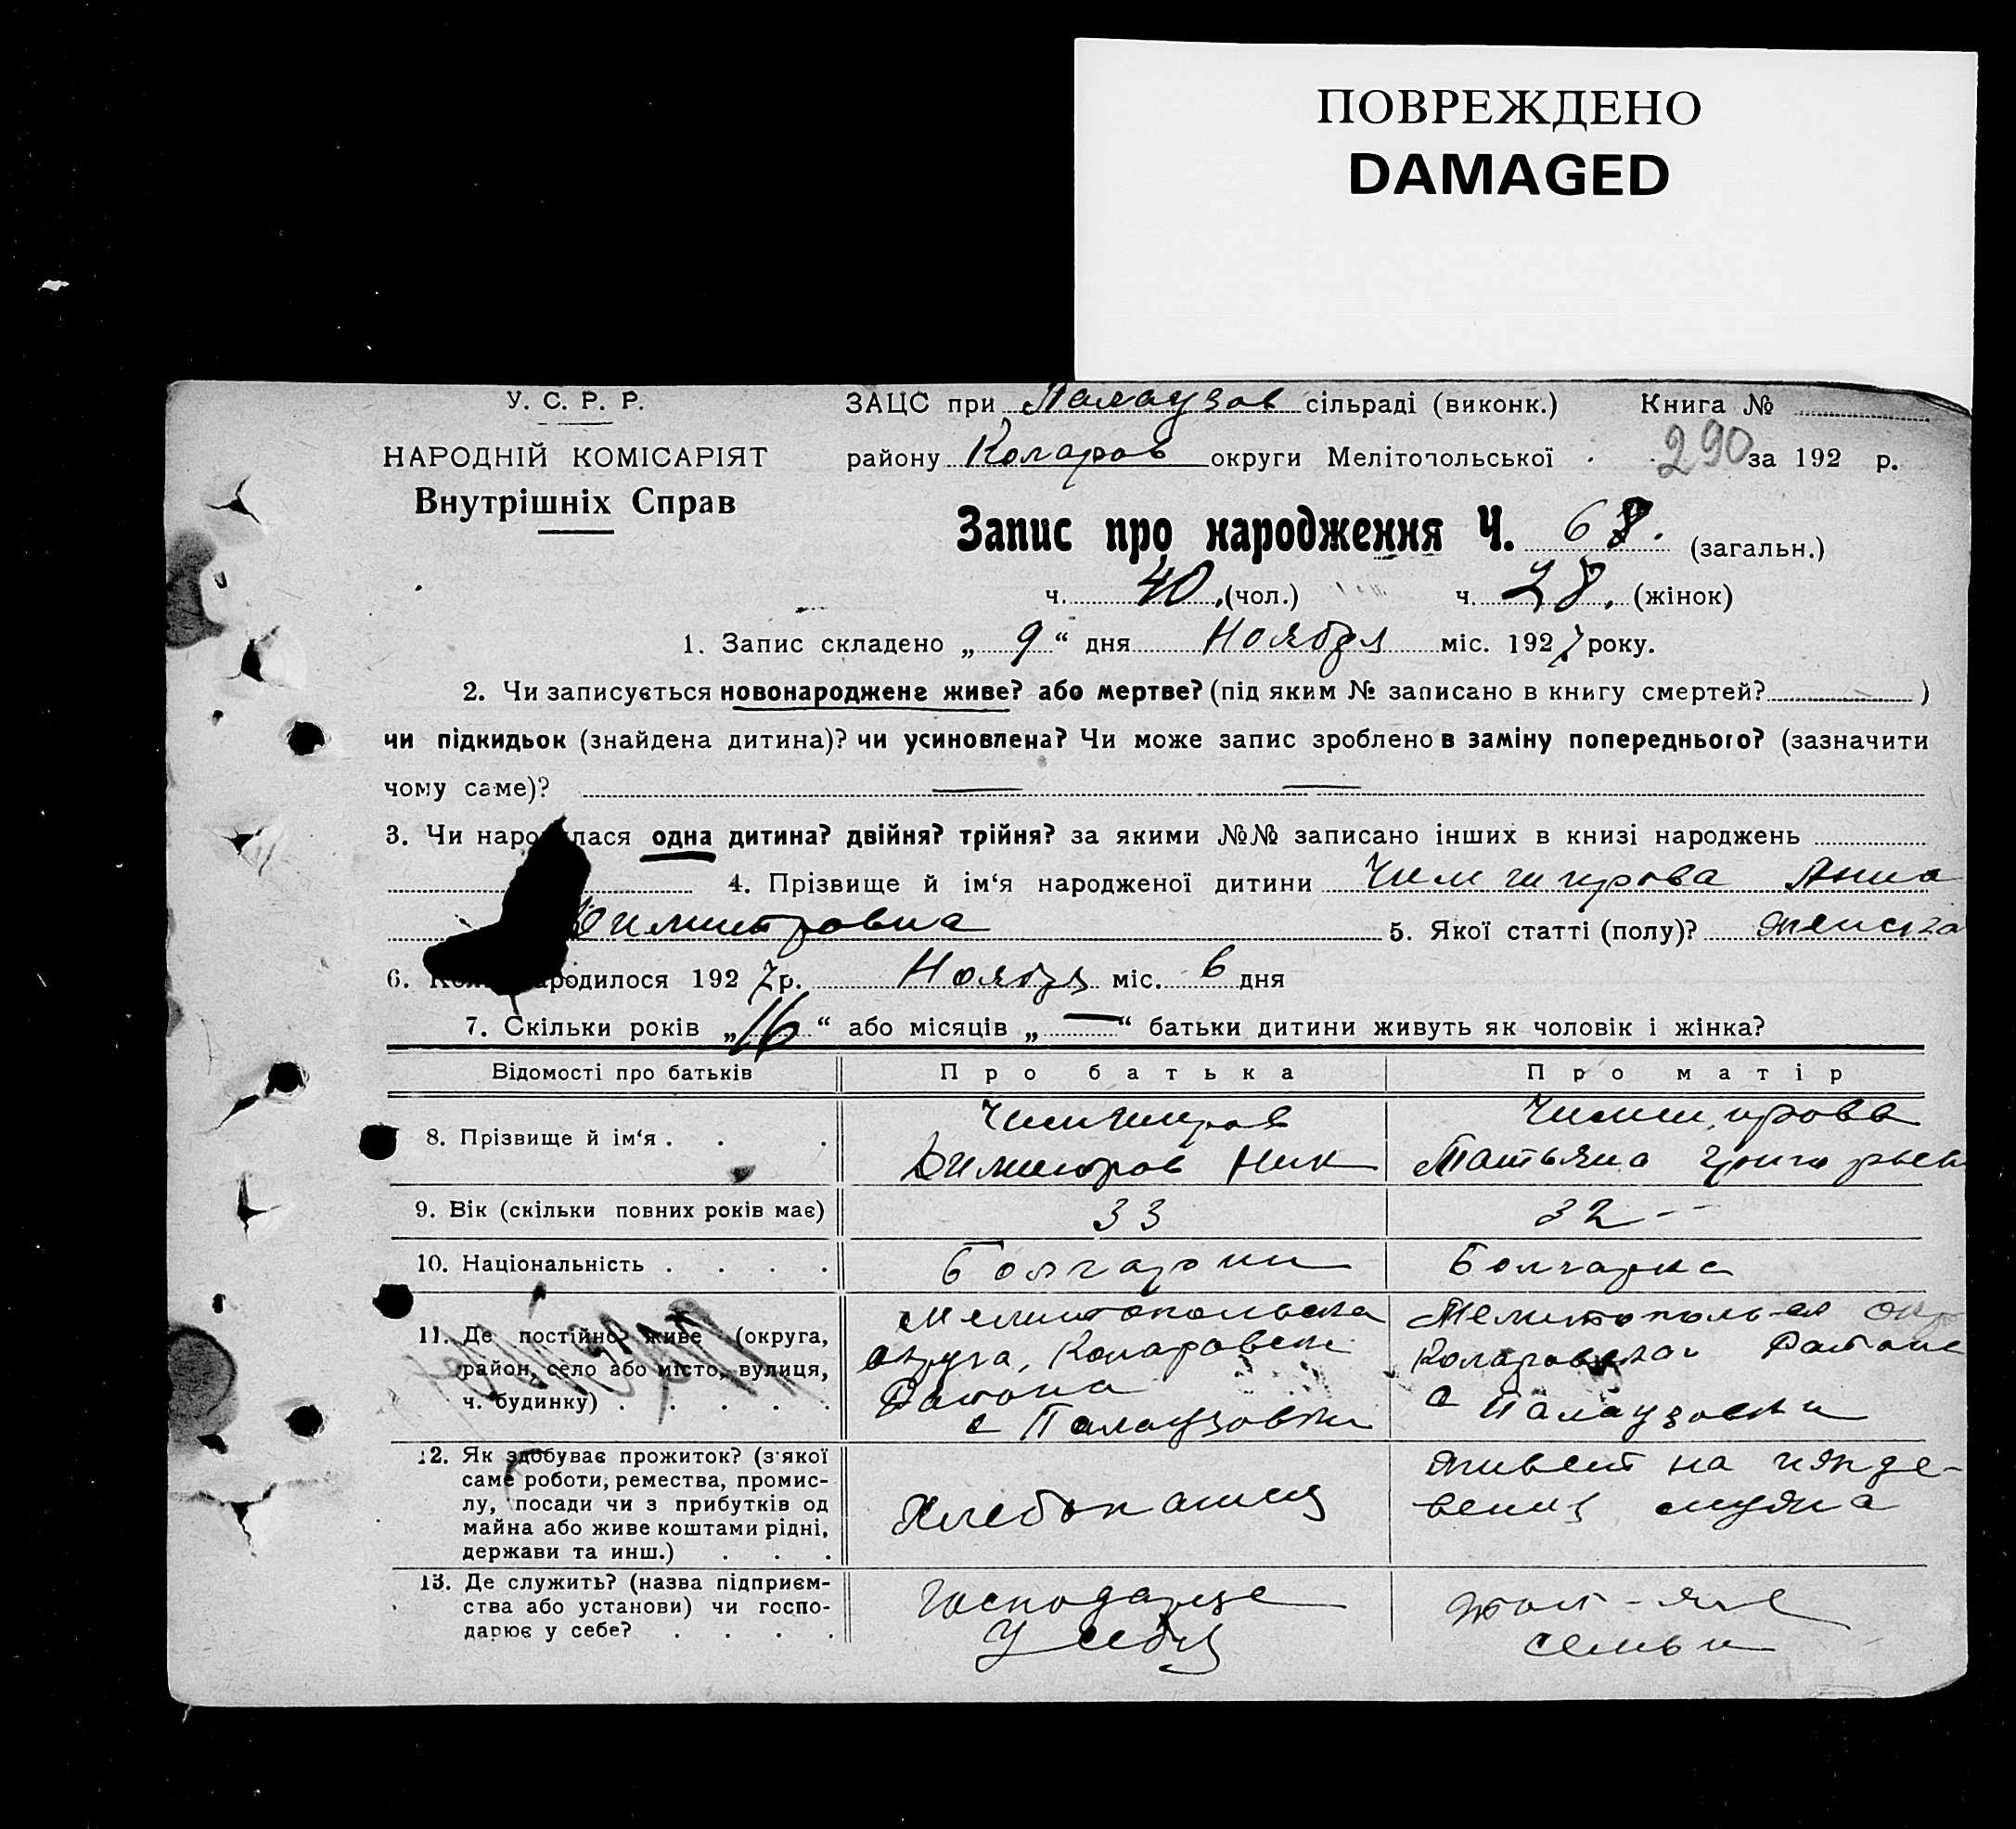 ПОВРЕЖДЕНО
DAMAGED
У. С. Р. Р.
НАРОДНІЙ КОМІСАРІЯТ
Внутрішніх Справ
ЗАЦС при Палаузов сільраді (виконк.) Книга №
району Коларов округи Мелітопольської 290 за 192 р.
Запис про народження Ч. 68. (загальн.)
ч. 40. (чол.) ч. 28. (жінок)
1. Запис складено „ 9 “ дня Ноября міс. 1927 року.
2. Чи записується новонароджене живе? або мертве? (під яким № записано в книгу смертей? )
чи підкидьок (знайдена дитина)? чи усиновлена? Чи може запис зроблено в заміну попереднього? (зазначити
чому саме)? — —
3. Чи нар лася одна дитина? двійня? трійня? за якими №№ записано інших в книзі народжень
4. Прізвище й ім‘я народженої дитини Чимширова Анна
Димитровна 5. Якої статті (полу)? женска
6. Ко ародилося 1927 р. Ноября міс. 6 дня
7. Скільки років „ 16 “ або місяців „ — “ батьки дитини живуть як чоловік і жінка?
Відомості про батьків Про батька Про матір
8. Прізвище й ім‘я . . .
Чимширов
Димитров Ник
Чимширова
Татьяна Григорьев
9. Вік (скільки повних років має) 33 32 --
10. Національність . . . . Болгарин Болгарка
11. Де постійно живе (округа,
район, село або місто, вулиця,
ч. будинку) . . . . .
Мелитопольска
округа, Коларовски
Района
с Палаузовки
Мелитополь-ая окр
Района
с Палаузовки
12. Як здобуває прожиток? (з'якої
саме роботи, ремества, промис-
лу, посади чи з прибутків од
майна або живе коштами рідні,
держави та инш.) . . .
Хлебопашец
живет на ижде-
вении мужа
13. Де служить? (назва підприєм-
ства або установи) чи госпо-
дарює у себе? . . . .
Господарце
У себя
семьи